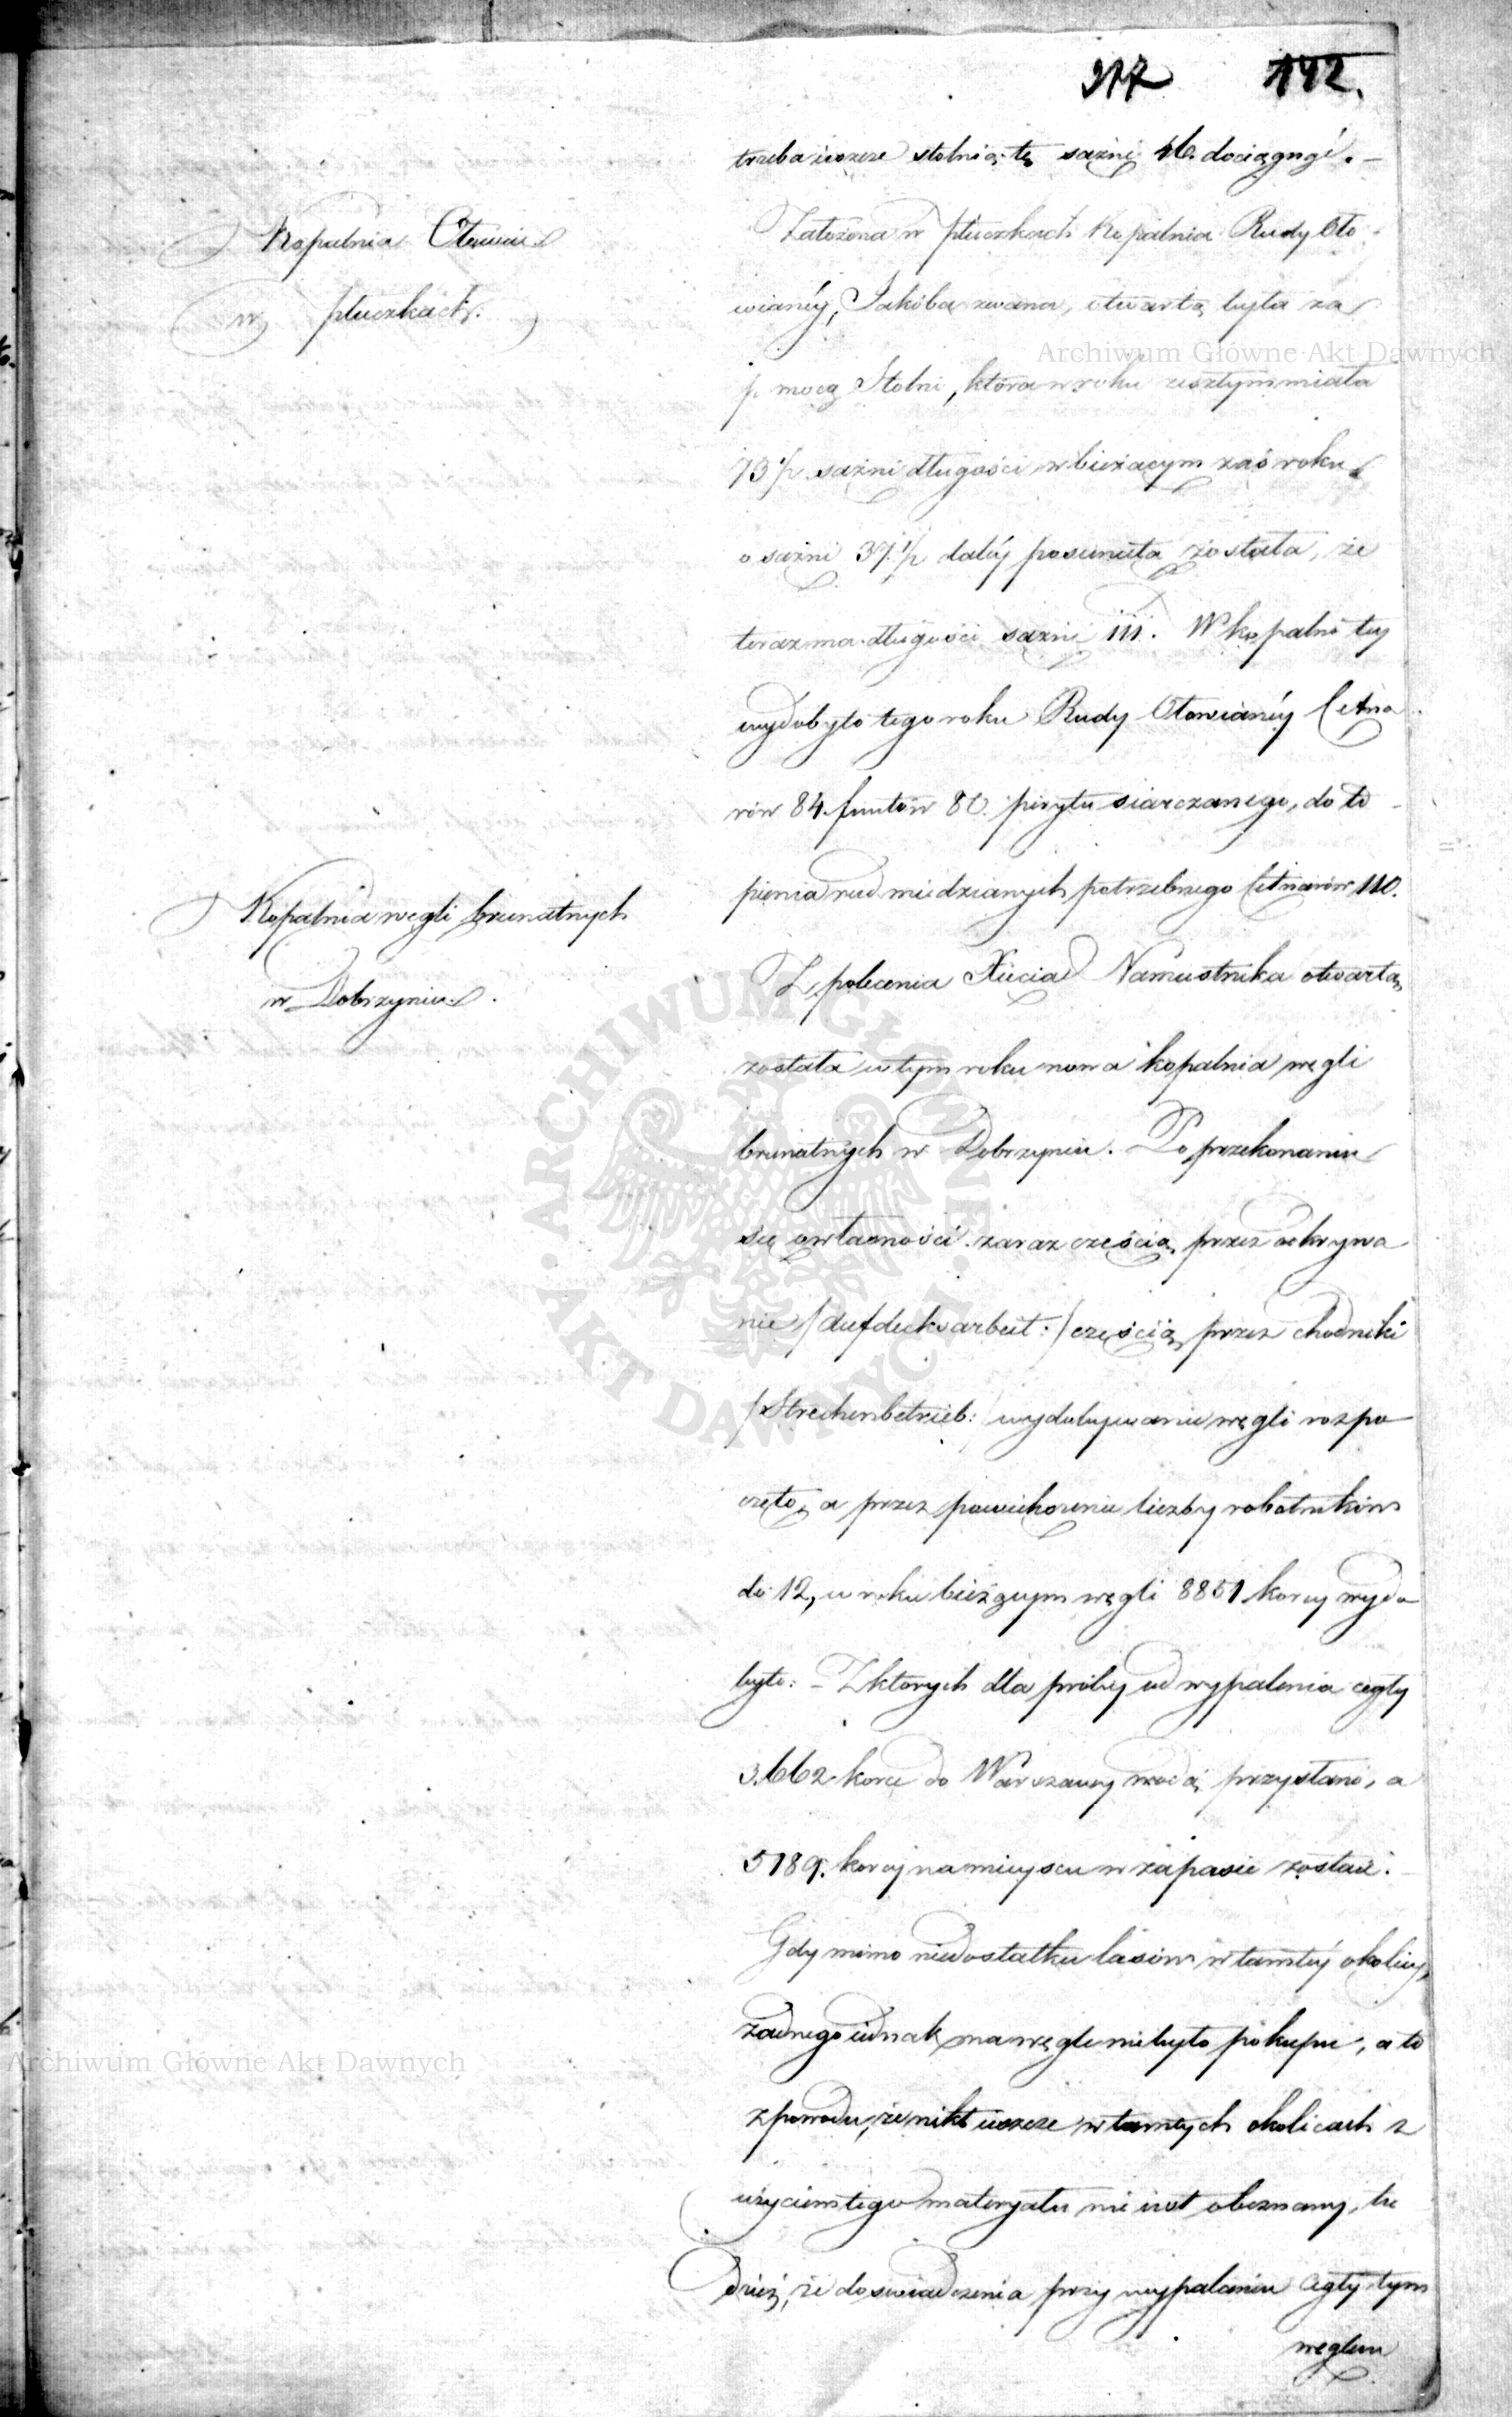 317 142.
trzeba ieszcze stolnią tę sążni 46. dociągnąć. —
Kopalnia Ołowiu
w płuczkach.
Założona w płuczkach Kopalnia Rudy Oło-
wianéy, Jakóba zwana, otwartą była za
pomocą Stolni, która w roku zeszłym miała
73 1/2 sążni długości w bieżącym zaś roku
o sążni 37 1/2 daléy posunięta została, że
teraz ma długości sążni 111. W kopalni tey
wydobyto tego roku Rudy Ołowianéy Cetna
rów 84. funtów 80. pirytu siarczanego, do to-
pienia rud miedzianych potrzebnego Cetnarów 110.
Kopalnia węgli brunatnych
w Dobrzyniu.
Z polecenia Xięcia Namiestnika otwartą
została w tym roku nowa kopalnia węgli
brunatnych w Dobrzyniu. Po przekonaniu
się o własności zaraz częścią przez odkrywa
nie /: Aufdecksarbeit :/ częścią przez chodniki
/: Streckenbetrieb :/ wydobywanie węgli rozpo
częto, a przez powiększenie liczby robotników
do 12, w roku bieżącym węgli 8851 korcy wydo
byto: — Z których dla próby do wypalenia cegły
3.662 korce do Warszawy wodą przysłano, a
5189. korcy na mieyscu w zapasie zostaie.
Gdy mimo niedostatku lasów w tamtéy okolicy,
żadnego iednak na węgle niebyło pokupu, a to
z powodu, że nikt ieszcze w tamtych okolicach z
użyciem tego materyału nie iest obeznany, tu
dzież, że doświadczenia przy wypalaniu Cegły tym
węglem
Archiwum Główne Akt Dawnych
Archiwum Główne Akt Dawnych
ARCHIWUM GŁÓWNE AKT DAWNYCH